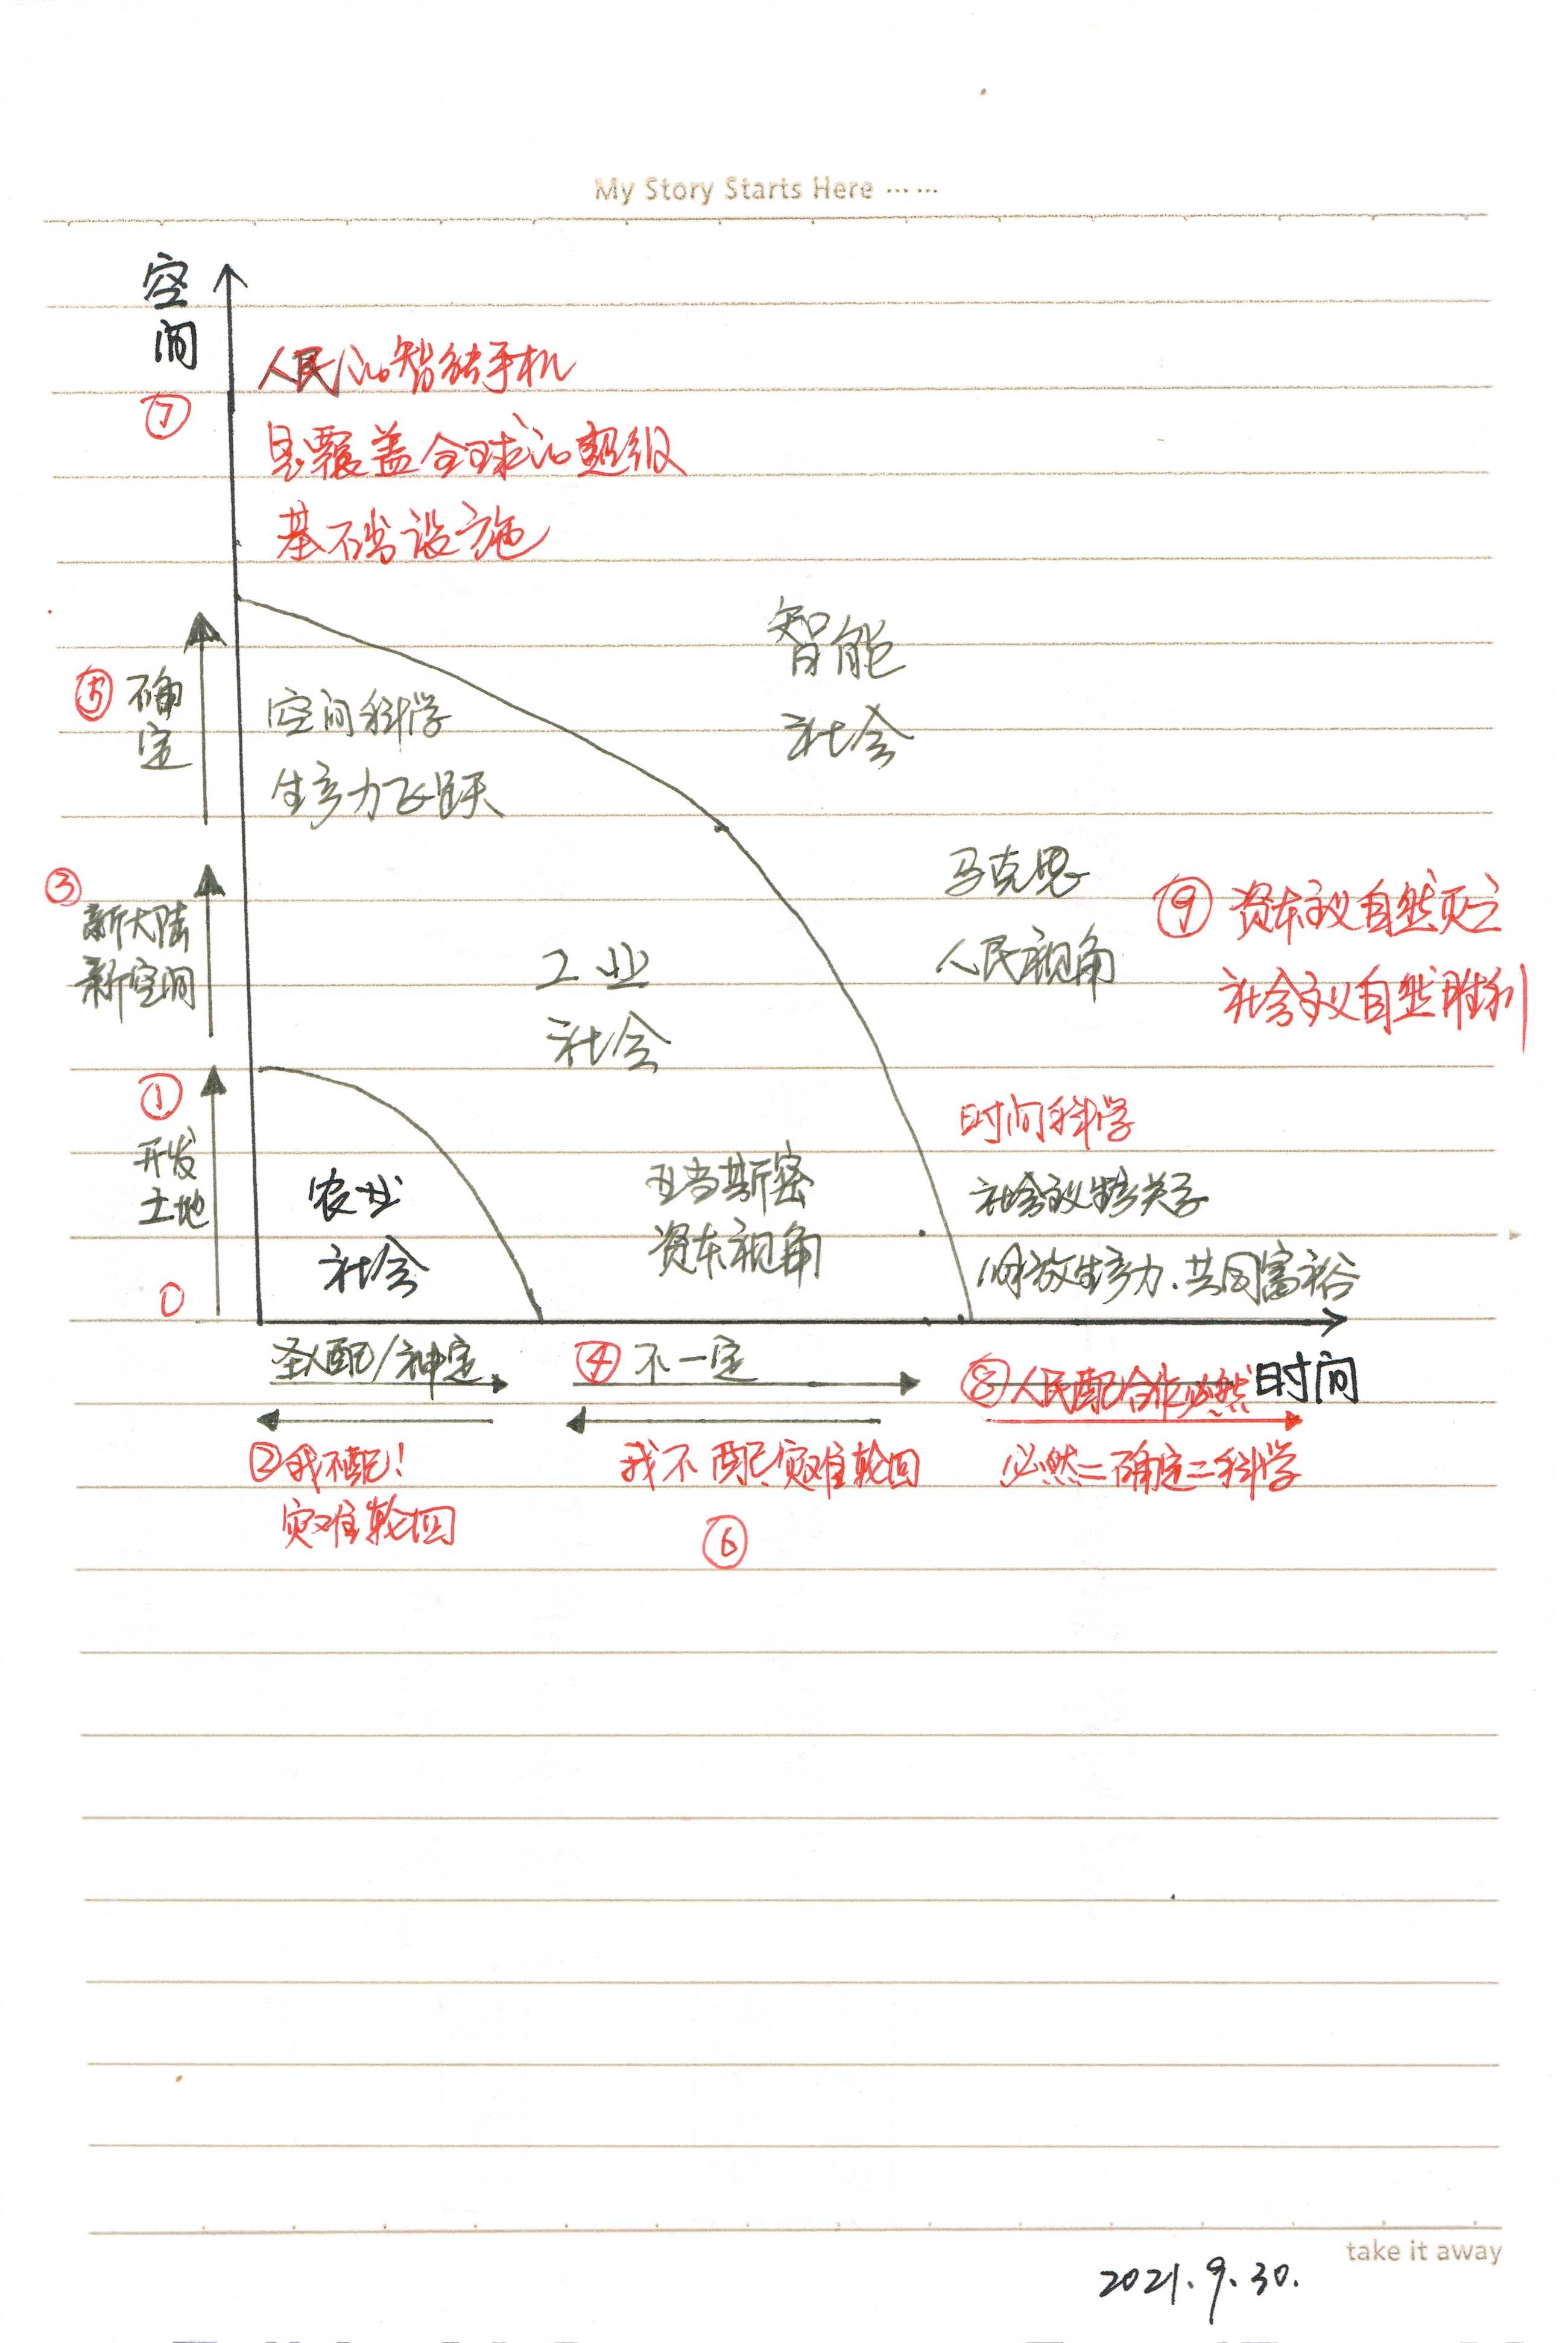 My Story Starts Here ……
空
间
⑦
人民的智能手机
是覆盖全球的超级
基础设施
智能
社会
⑤ 确
定
空间科学
生产力飞跃
③
新大陆
新空间
工业
社会
马克思
人民视角
⑨ 资本主义自然灭亡
社会主义自然胜利
①
开发
土地
农业
社会
亚当斯密
资本视角
时间科学
社会主义生产关系
解放生产力.共同富裕
0
圣人配/神定
④ 不一定
⑧人民配合作必然
时间
②我不配!
灾难轮回
我不配灾难轮回
⑥
必然=确定=科学
take it away
2021.9.30.